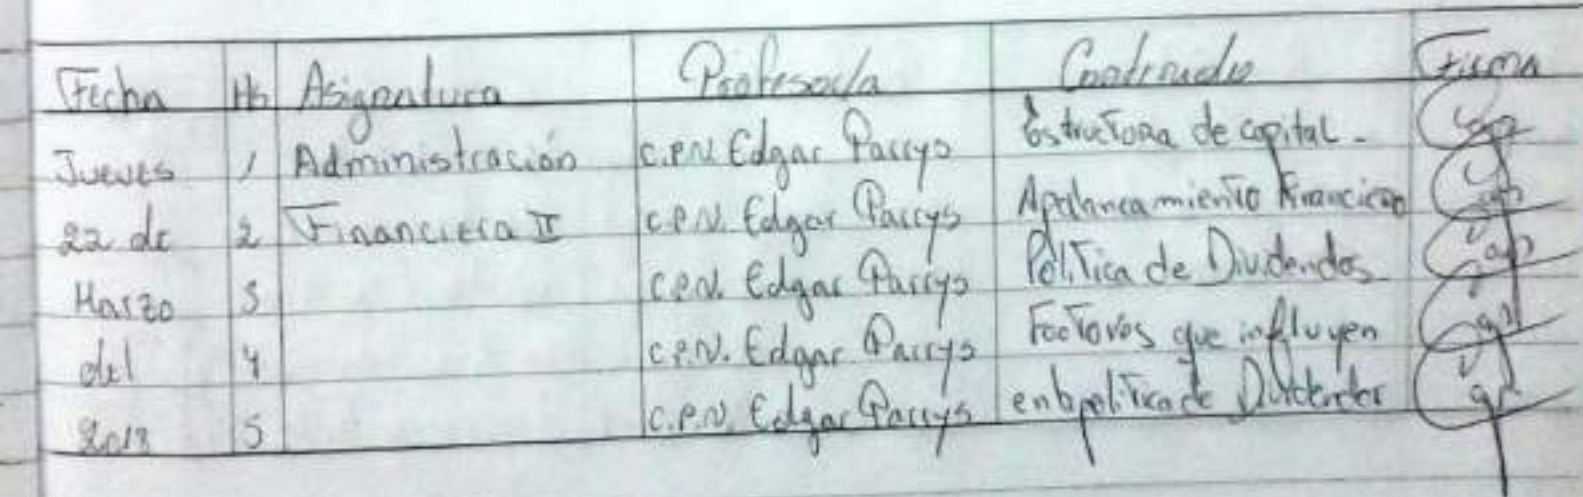 Fecha Hs Asignatura Profesor/a Contenido Firma
Jueves 1 Administración C.P.N. Edgar Parrys Estructura de capital.
22 de 2 Financiera II C.P.N. Edgar Parrys Apalancamiento Financiero
Marzo 3 C.P.N. Edgar Parrys Política de Dividendos
del 4 C.P.N. Edgar Parrys Factores que influyen
2018 5 C.P.N. Edgar Parrys en la política de Dividendos